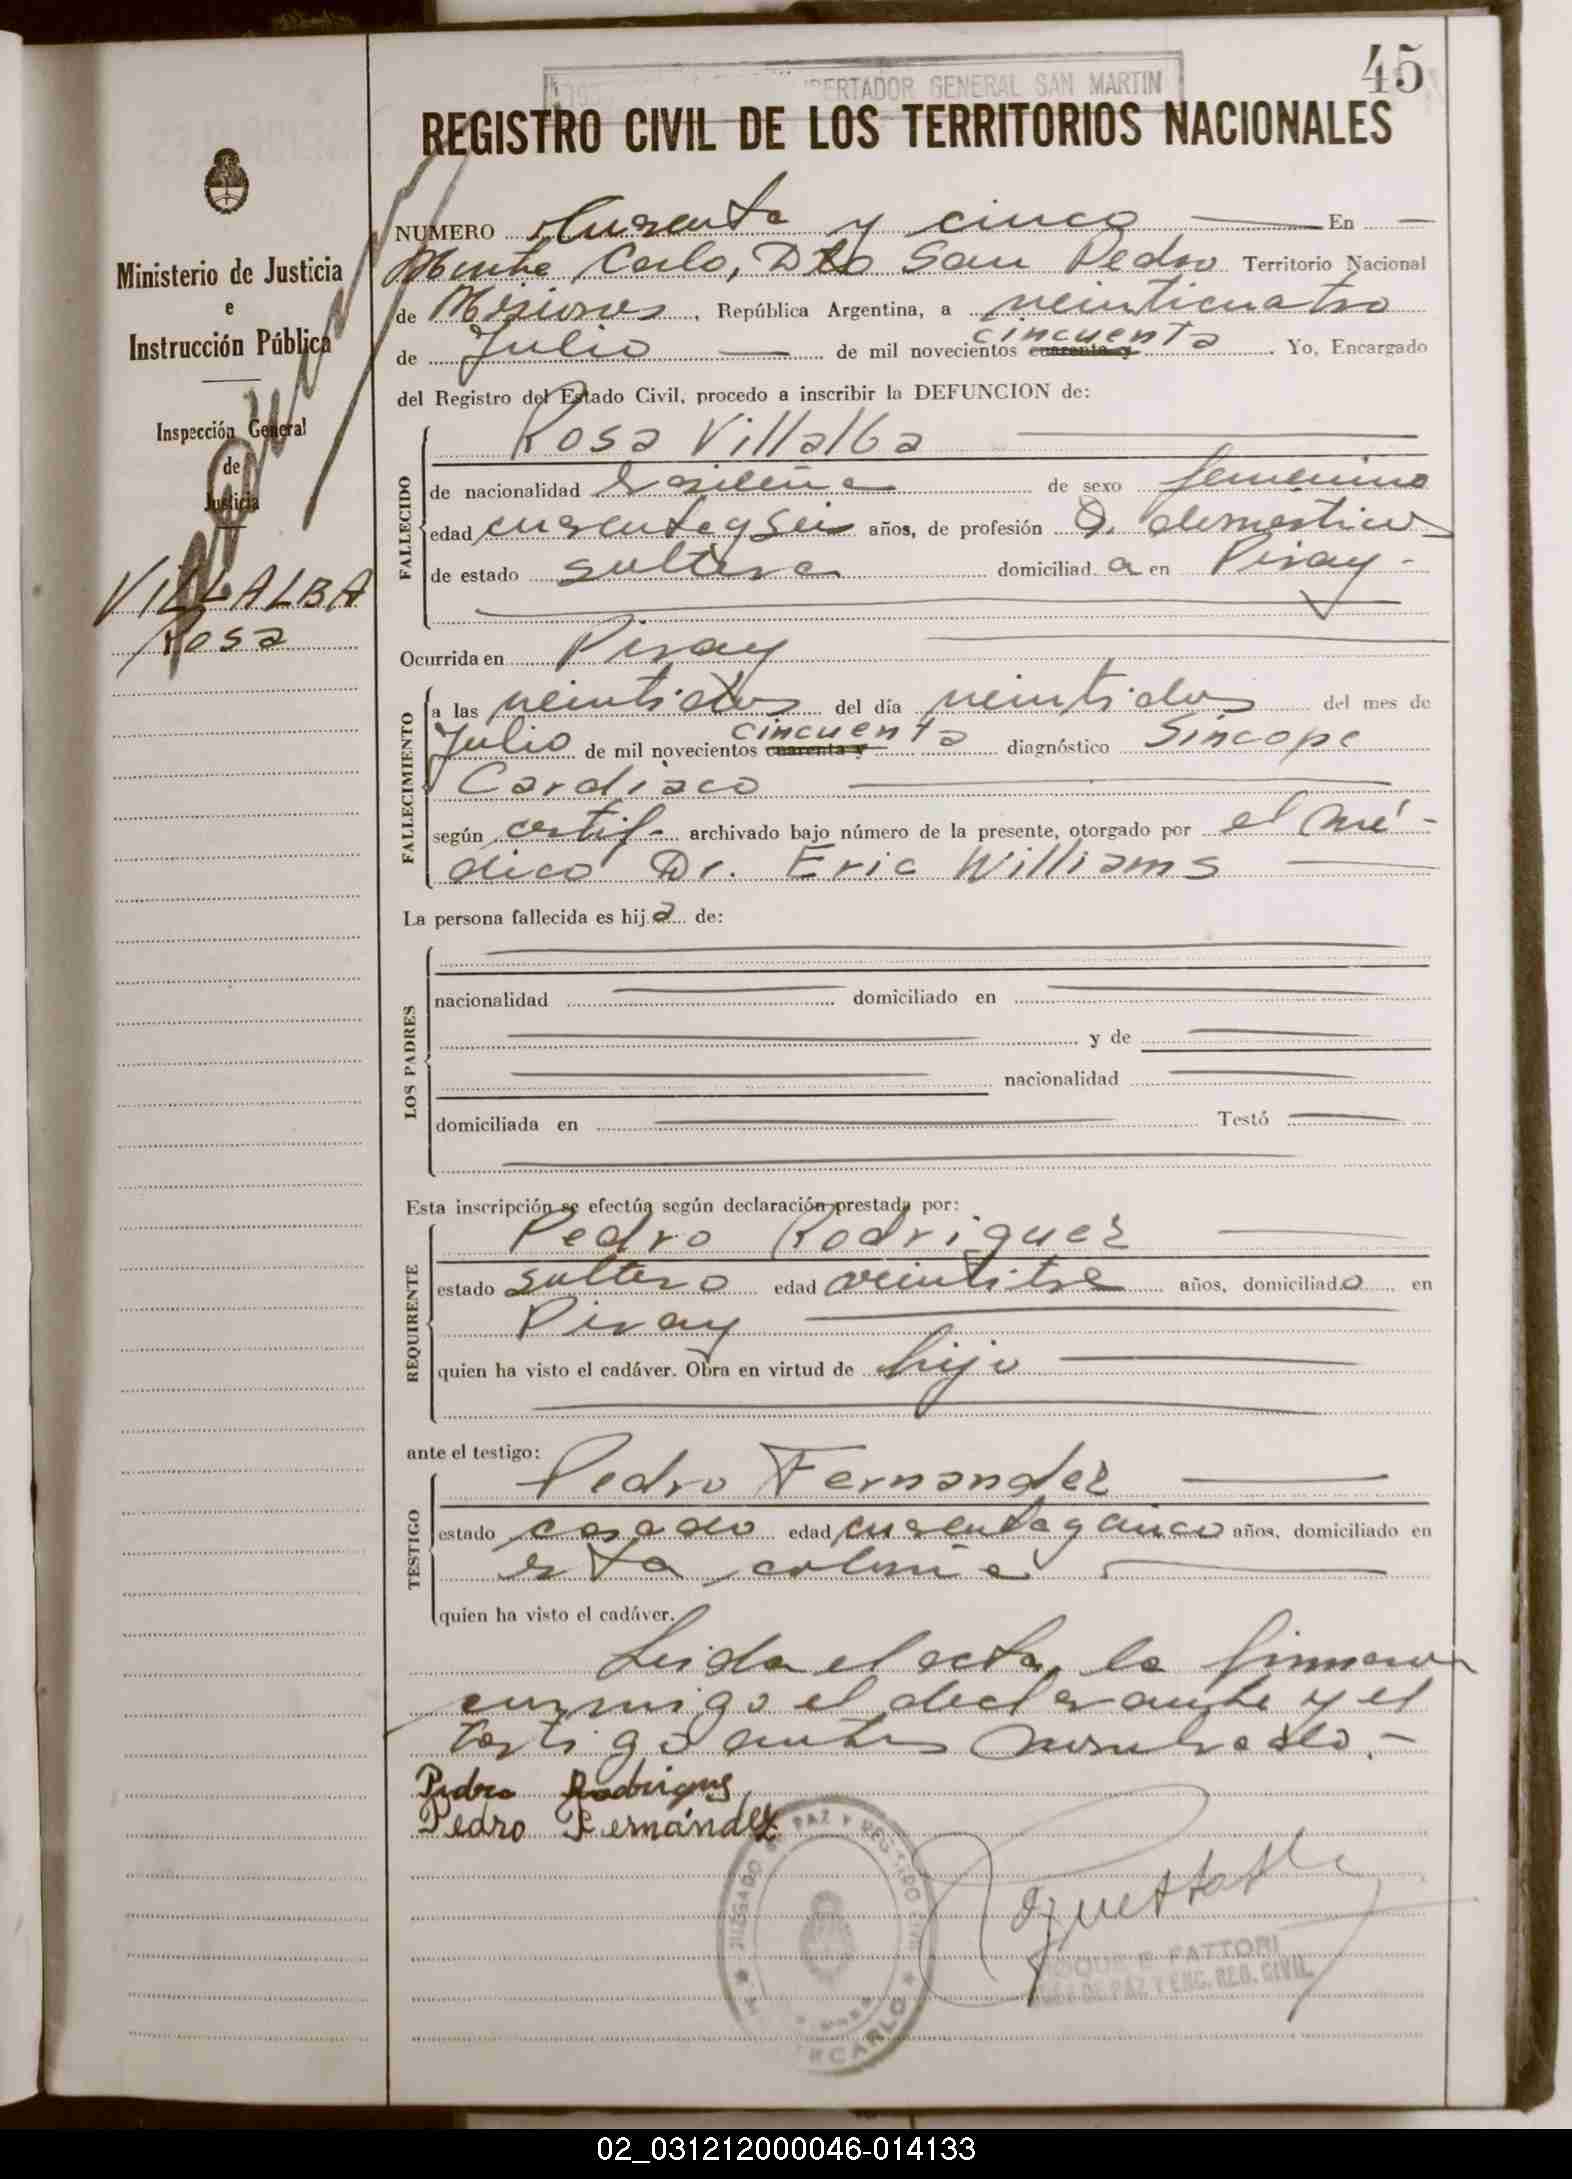 45
LIBERTADOR GENERAL SAN MARTIN
REGISTRO CIVIL DE LOS TERRITORIOS NACIONALES
Ministerio de Justicia
e
Instrucción Pública
Inspección General
de
Justicia
VILLALBA
Rosa
NUMERO Cuarenta y cinco En
Monte Carlo, Dto San Pedro Territorio Nacional
de Misiones, República Argentina, a veinticuatro
de Julio de mil novecientos cuarenta y cincuenta. Yo, Encargado
del Registro del Estado Civil, procedo a inscribir la DEFUNCION de:
FALLECIDO
Rosa Villalba
de nacionalidad brasileña de sexo femenino
edad cuarenta y seis años, de profesión Q. domesticos
de estado soltera domiciliad a en Piray.-
Ocurrida en Piray
FALLECIMIENTO
a las veintidos del día veintidos del mes de
Julio de mil novecientos cuarenta y cincuenta diagnóstico Sincope
Cardiaco
según certif. archivado bajo número de la presente, otorgado por el mé-
dico Dr. Eric Williams
La persona fallecida es hij a de:
LOS PADRES
nacionalidad domiciliado en
y de
nacionalidad
domiciliada en Testó
Esta inscripción se efectúa según declaración prestada por:
REQUIRENTE
Pedro Rodriguez
estado soltero edad veintitres años, domiciliado en
Piray
quien ha visto el cadáver. Obra en virtud de hijo
ante el testigo:
TESTIGO
Pedro Fernandez
estado casado edad cuarenta y cinco años, domiciliado en
esta colonia
quien ha visto el cadáver.
Leida el acta, la firmaron
conmigo el declarante y el
testigo antes nombrado.-
Pedro Rodrigues
Pedro Fernández
JUZGADO DE PAZ Y REGISTRO CIVIL
ROQUE E. FATTORI
JUEZ DE PAZ Y ENC. REG. CIVIL
02_031212000046-014133